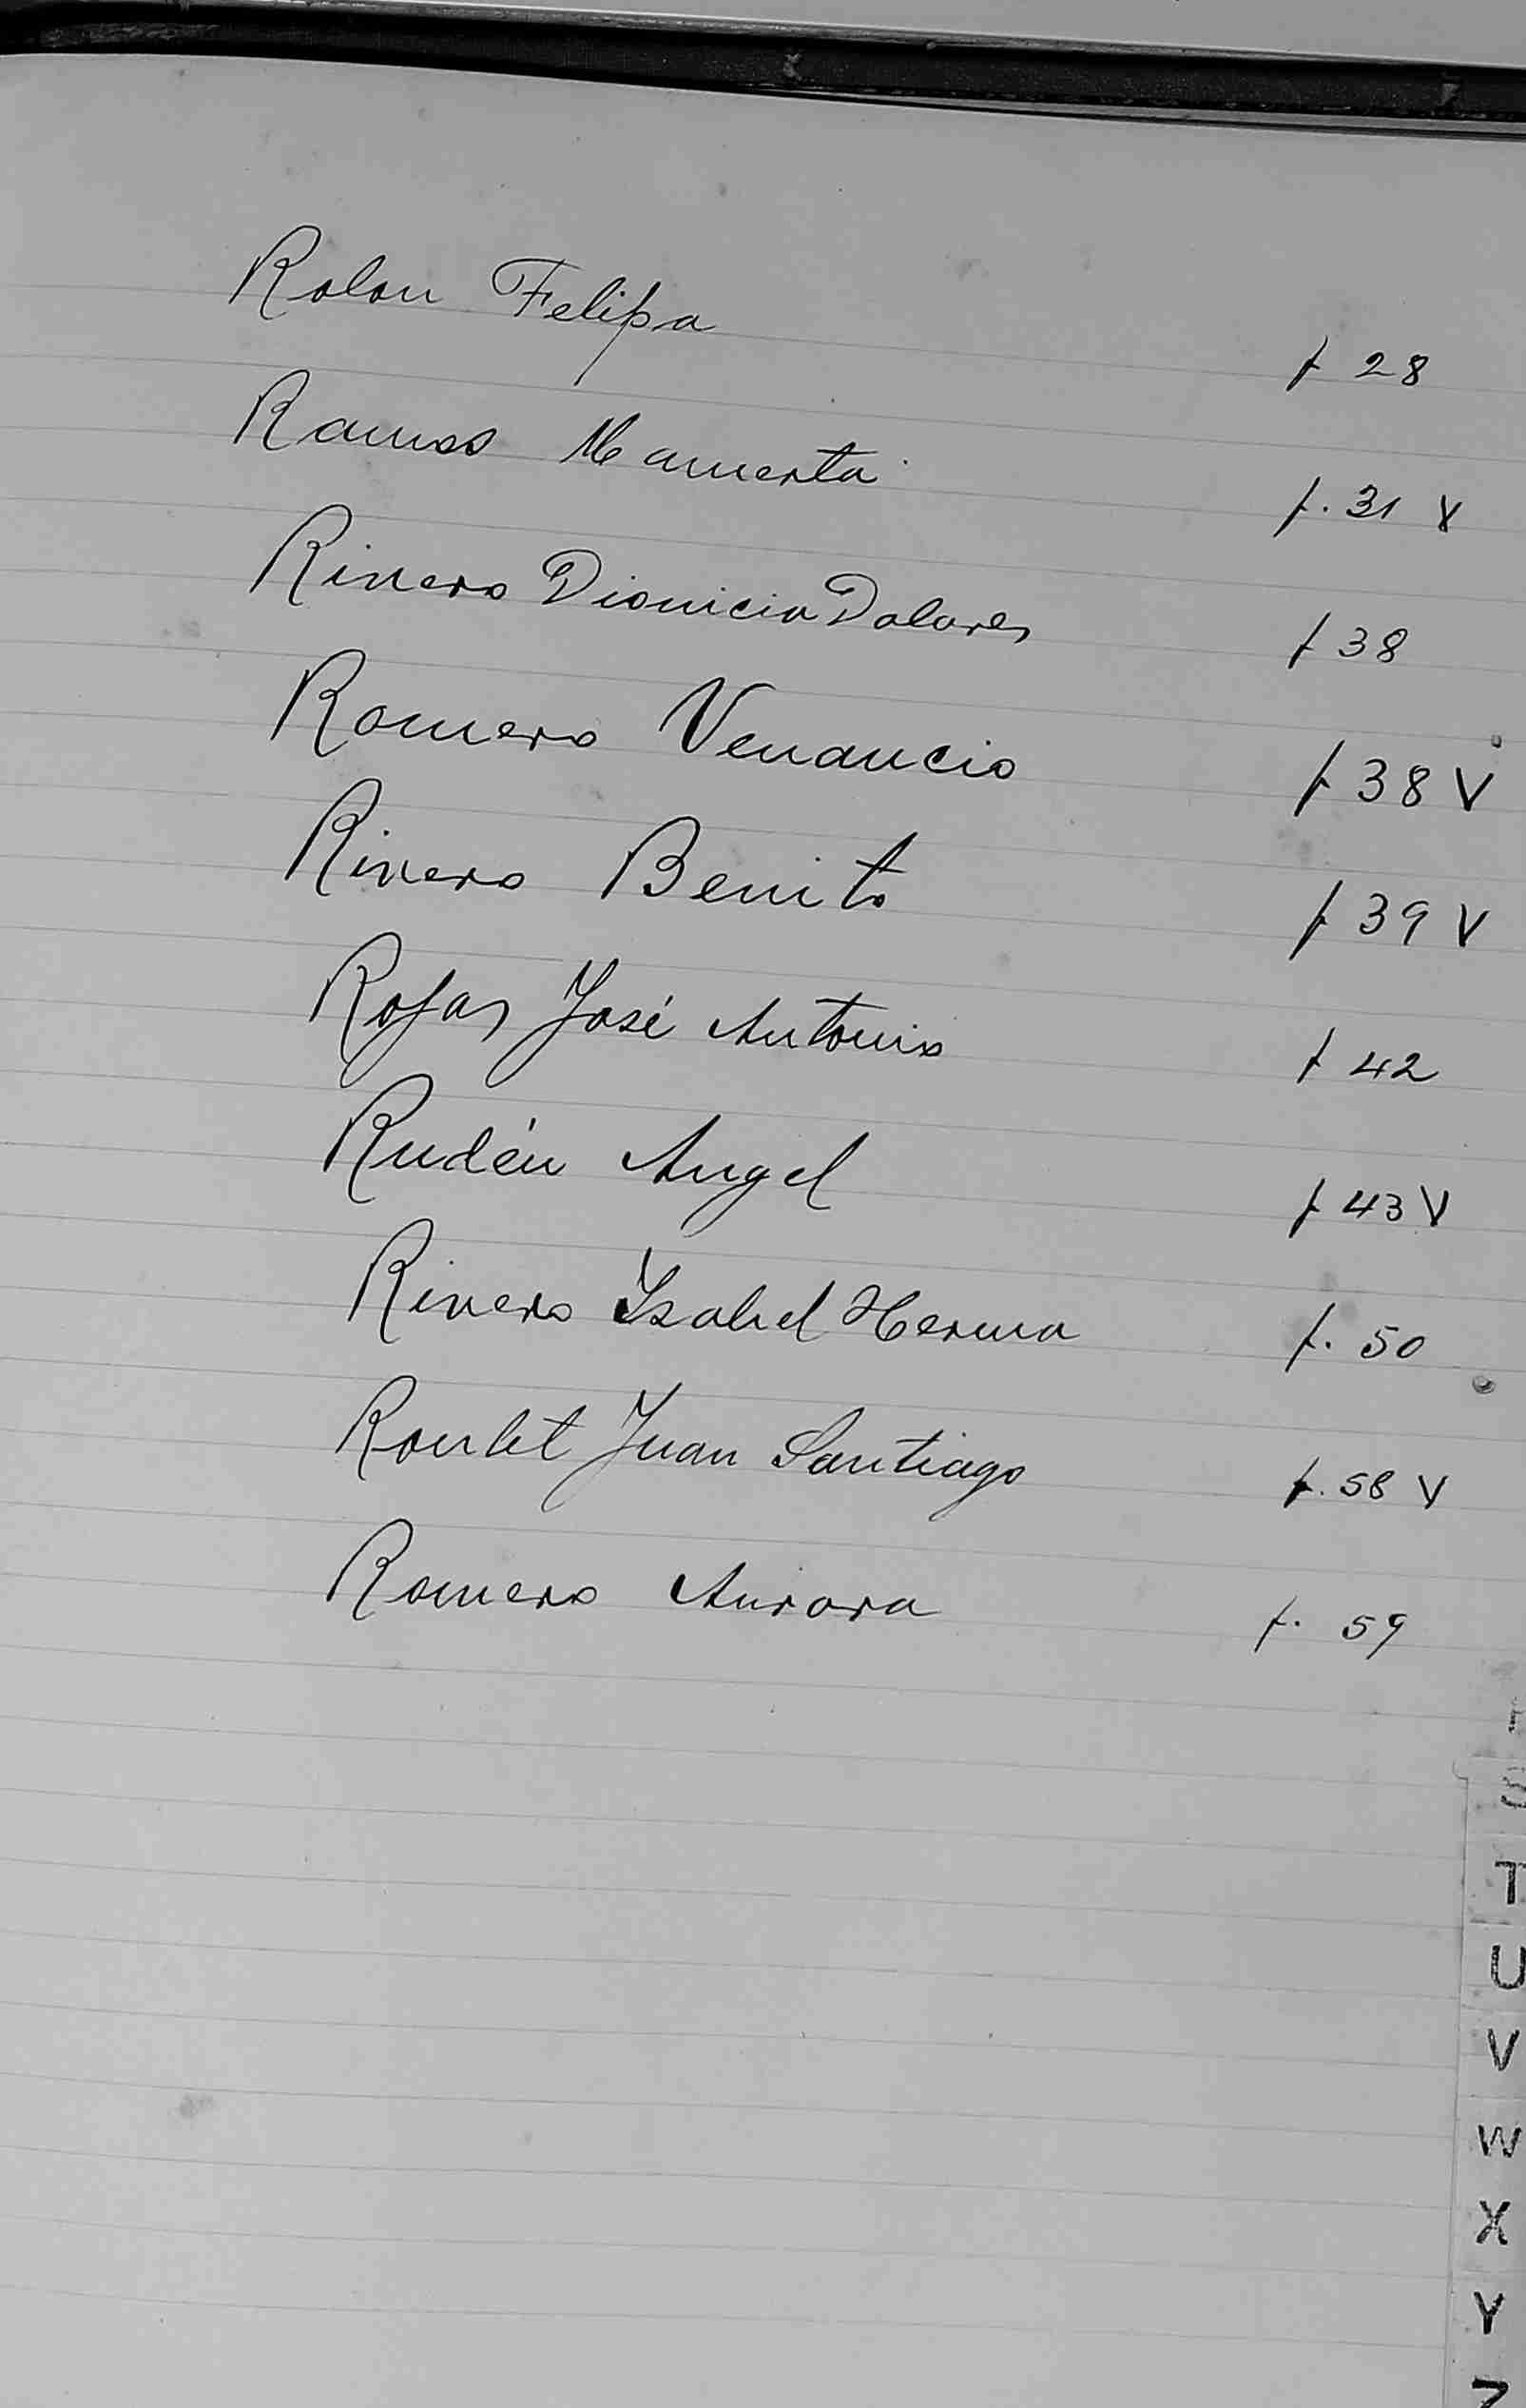 Rolon Felipa f 28
Ramos Mamerta f. 31 V
Rivero Dionicia Dolores f 38
Romero Venancio f 38 V
Rivero Benito f 39 V
Rojas José Antonio f 42
Rudén Angel f 43 V
Rivero Ysabel Herma f. 50
Roulet Juan Santiago f. 58 V
Romero Aurora f. 59
S
T
U
V
W
X
Y
Z